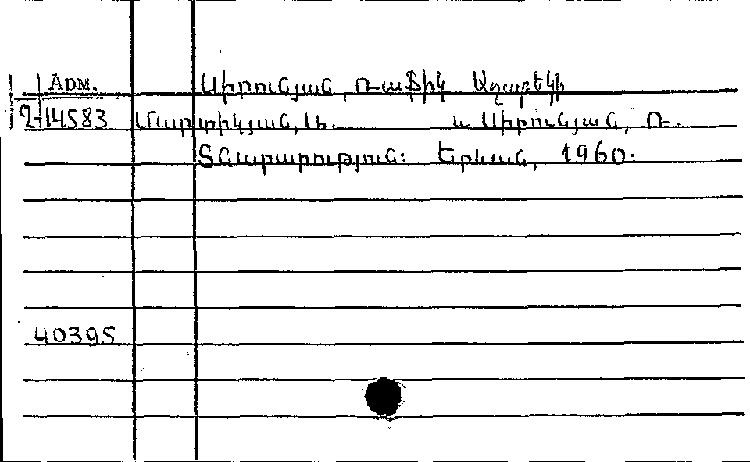 ADM. Սիրունյան, Ռաֆիկ Աղաբեկի
2-14583 Մարտիկյան, Ս. և Սիրունյան, Ռ.
Տնարարություն: Երևան, 1960.
40395